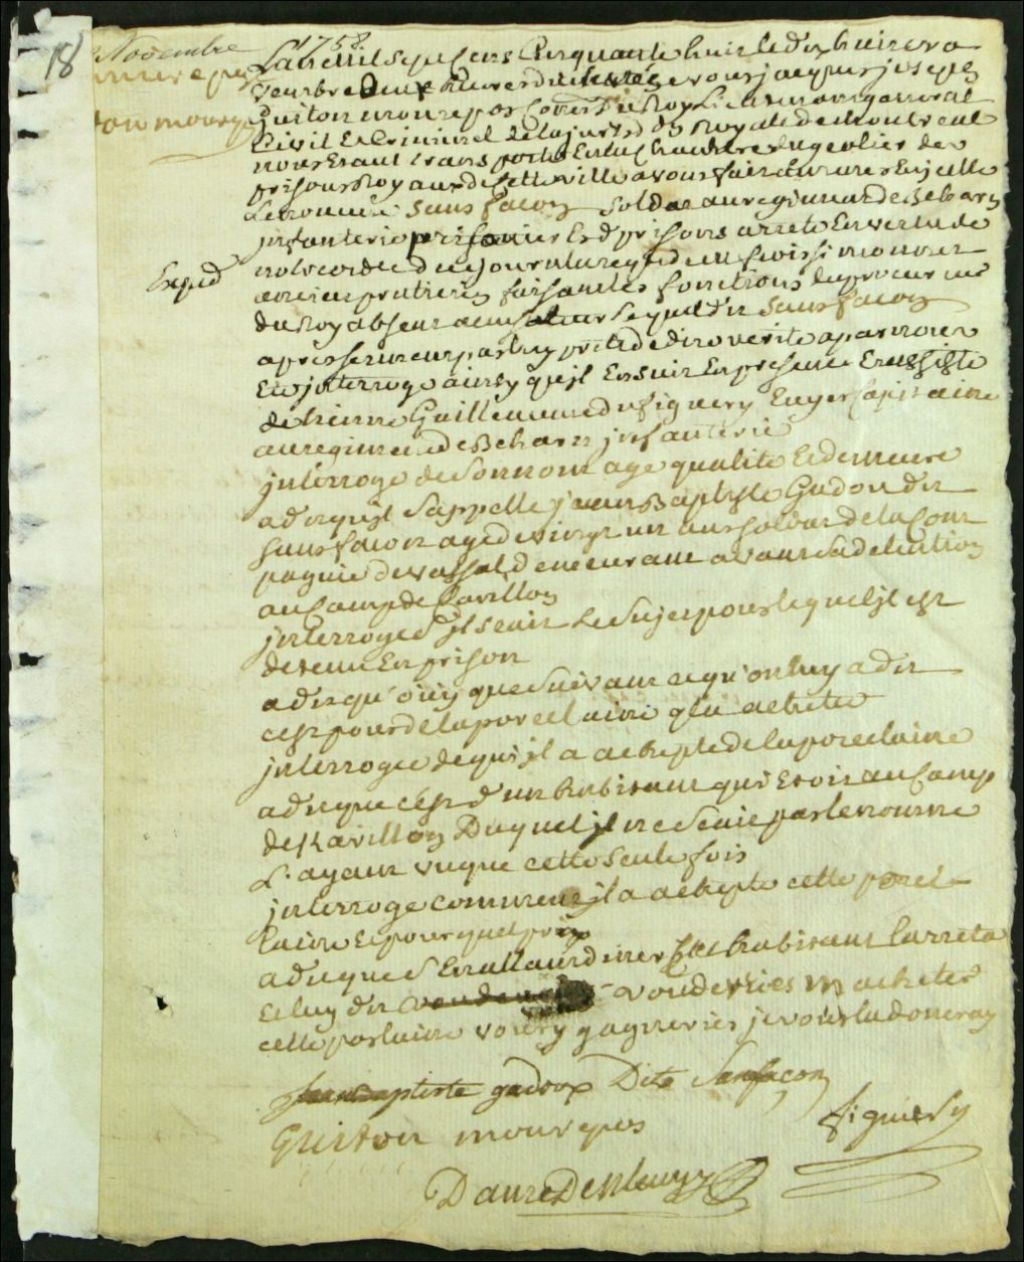 18
Novembre
1758.
Lan mil sept Cens Cinquante huit le dix huit no
vembre deux heures de relevée nous jacques joseph
Guiton monrepos Coner du Roy Lieutenant general
Civil Et Criminel de la justice Roy ale de montreal
nous Etant transporté En la Chambre du geolier des
prisons Roy aux de Cette ville avons fait venir En jcelle
Le nommé sans facon soldat au regiment de Bearn
jnfanterie prisonier Es d prisons arreté En vertu de
notre ordce de ce jour
Exped
faisant les fonctions de procureur
du Roy absent lequel dit sans facon
apres serment par luy preté de dire verité a par nous
Eté jnterrogé ainsy qu'jl En suit En presence Et assisté
de Etienne Guillaume de figuery Ecuyer Capitaine
au regiment de Bearn jnfanterie
jnterrogé de son nom age qualité Et demeure
a dit qu'jl s'appelle jean Baptiste Gadou dit
sans facon agé de vingt un ans soldat de la Com
pagnie de vassal demeurant avant sa detention
au Camp de Cavillon
jnterrogé s'jl scait Le sujet pour lequel jl est
detenu En prison
a dit qu'ouy que suivant ce qu'on luy a dit
c'est pour de la porcelaine qu'il a achetée
jnterrogé de qui jl a achepté de la porcelaine
a dit que c'est d'un habitant qui Etoit au Camp
de Kavillon Duquel jl ne scait pas le nom ne
L'ayant vu que cette seule fois
jnterrogé comment jl a achepté cette porce
laine Et pour quel prix
a dit que s'En allant diner cet habitant l'arreta
Et luy dit voudriés vous m acheter
cette porlaine vous y gagneriés je vous la doneray
jean baptiste gadoux Dite Sanfacon
Guiton monrepos
figuiery
Danré De Blanzy